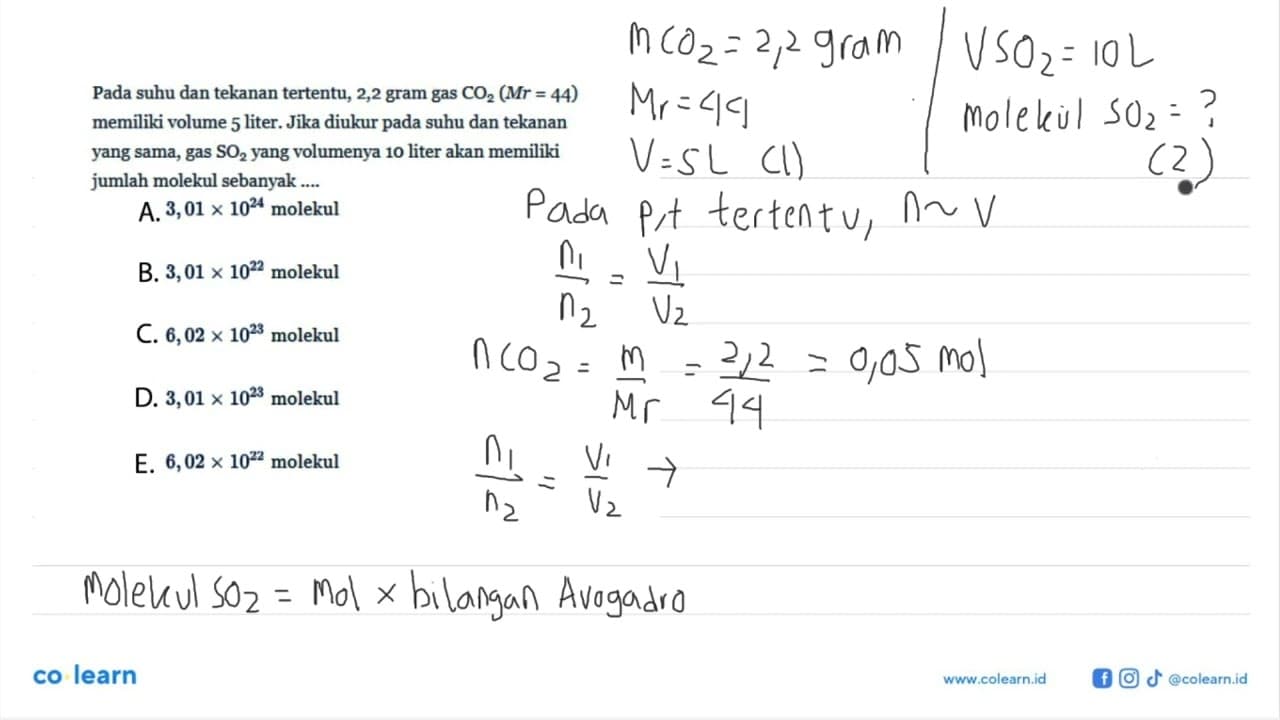 Pada suhu dan tekanan tertentu, 2,2 gram gas CO₂ (Mr = 44)
memiliki volume 5 liter. Jika diukur pada suhu dan tekanan
yang sama, gas SO₂ yang volumenya 10 liter akan memiliki
jumlah molekul sebanyak ....
A. 3,01 × 10²⁴ molekul
B. 3,01 × 10²² molekul
C. 6,02 × 10²³ molekul
D. 3,01 × 10²³ molekul
E. 6,02 × 10²² molekul
m CO₂ = 2,2 gram
Mr = 44
V = 5L (1)
V SO₂ = 10 L
molekul SO₂ = ?
(2)
Pada P,t tertentu, n ~ V
n₁/n₂ = V₁/V₂
n CO₂ = m/Mr = 2,2/44 = 0,05 mol
n₁/n₂ = V₁/V₂ →
Molekul SO₂ = mol × bilangan Avogadro
co learn
www.colearn.id
@colearn.id